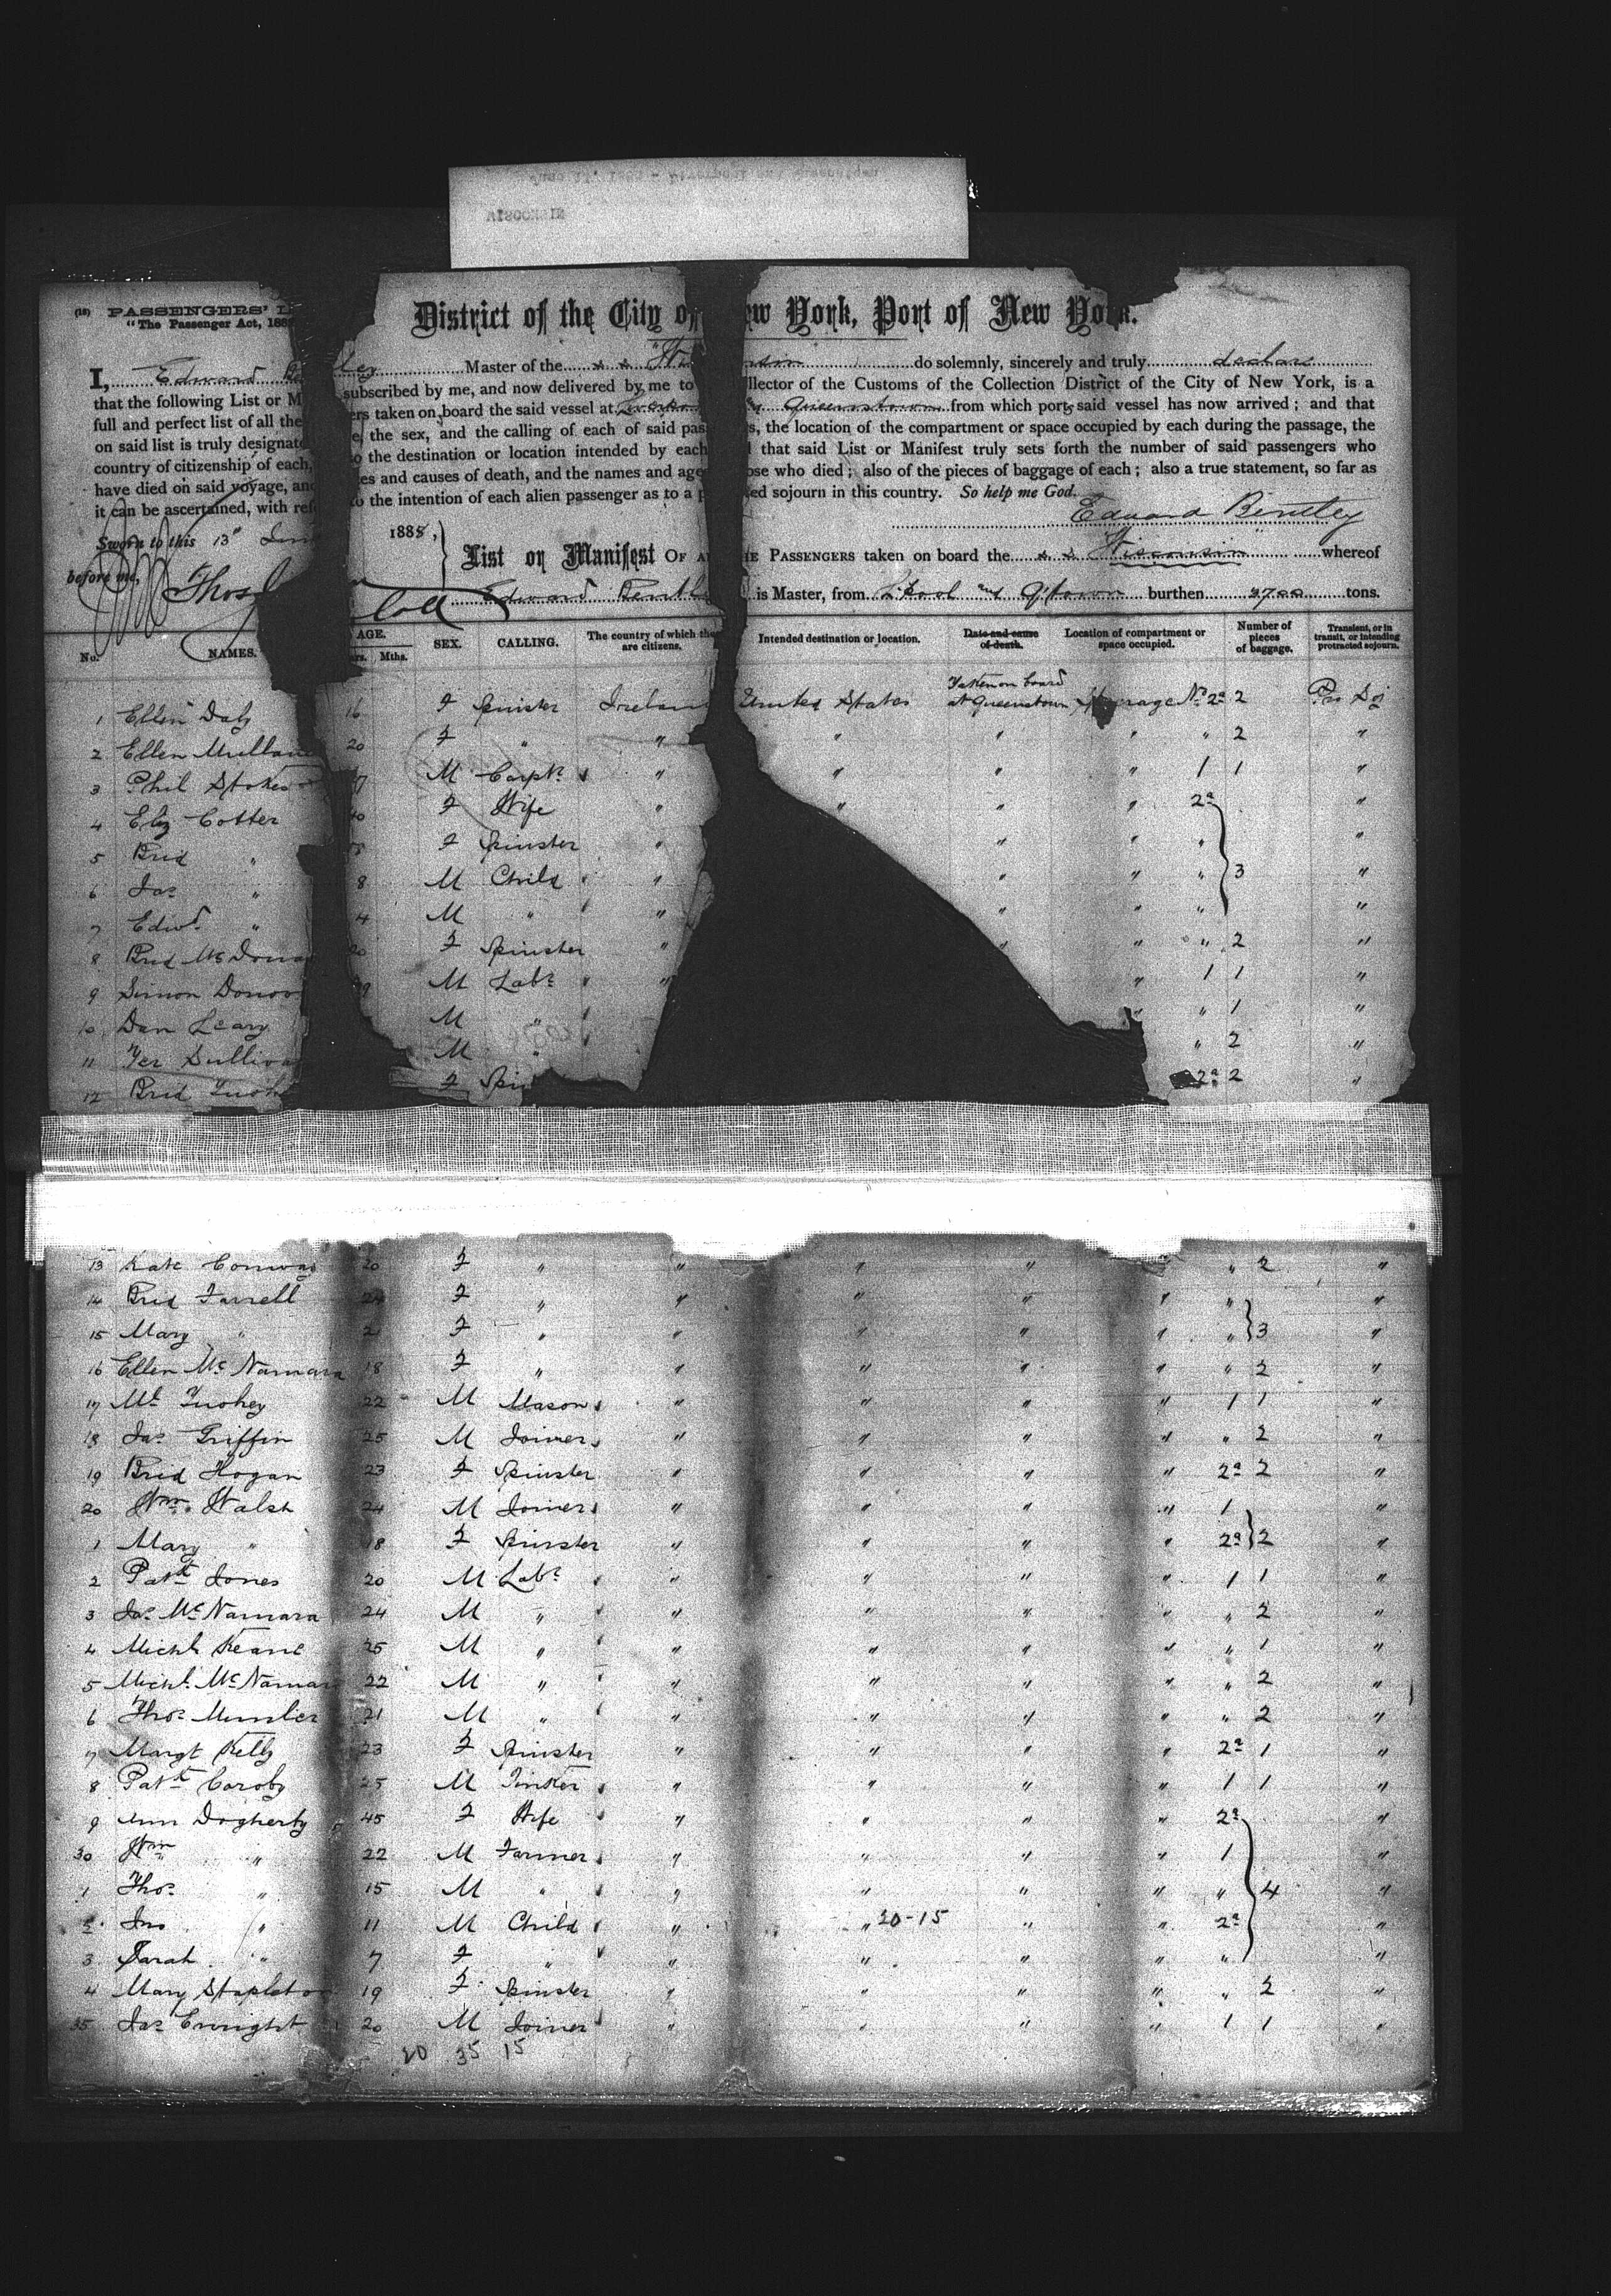 WISCONSIN
(18) PASSENGERS' LI
"The Passenger Act, 188
District of the City of ew York, Port of New York.
I, Edward Be ley Master of the s.s. "Wis onsin" do solemnly, sincerely and truly declare
that the following List or M subscribed by me, and now delivered by me to llector of the Customs of the Collection District of the City of New York, is a
full and perfect list of all the ers taken on board the said vessel at Queenstown from which ports said vessel has now arrived; and that
on said list is truly designate e, the sex, and the calling of each of said pas s, the location of the compartment or space occupied by each during the passage, the
country of citizenship of each, o the destination or location intended by each that said List or Manifest truly sets forth the number of said passengers who
have died on said voyage, and es and causes of death, and the names and age ose who died; also of the pieces of baggage of each; also a true statement, so far as
it can be ascertained, with ref to the intention of each alien passenger as to a p ed sojourn in this country. So help me God.
Edward Bentley
Sworn to this 13" 1888,
before me, Thos
List or Manifest OF A HE PASSENGERS taken on board the s.s. "Wisconsin" whereof
Edward Bentl is Master, from L'Pool and Q'town burthen 3700 tons.
No. NAMES. AGE. rs. Mths. SEX. CALLING. The country of which the are citizens. Intended destination or location. Date and cause of death. Location of compartment or space occupied. Number of pieces of baggage. Transient, or in transit, or intending protracted sojourn.
1 Ellen Daly 16 F Spinster Irelan United States Taken on board at Queenstown Steerage No 2a 2 Pro Soj
2 Ellen Mullan 20 F " " " " " " 2 "
3 Phil Stokes 7 M Carptr " " " " 1 1 "
4 Eliz Cotter 40 F Wife " " " " 2a "
5 Brid " F Spinster " " " " "
6 Jas " 8 M Child " " " " 3 "
7 Edwd " 4 M " " " " "
8 Brid McDona 20 F Spinster " " " " 2 "
9 Simon Donov 9 M Labr " " " 1 1 "
10 Dan Leary M " " 1 "
11 Jer Sulliva M " " 2 "
12 Brid Tuoh F Spin 2a 2 "
13 Kate Conway 20 F " " " " " 2 "
14 Brid Farrell 24 F " " " " " " "
15 Mary " 21 F " " " " " " 3 "
16 Ellen McNamara 18 F " " " " " " 2 "
17 Ml Tuohey 22 M Mason " " " " 1 1 "
18 Jas Griffin 25 M Joiner " " " " " 2 "
19 Brid Hogan 23 F Spinster " " " " 2a 2 "
20 Wm Walsh 24 M Joiner " " " " 1 "
1 Mary " 18 F Spinster " " " " 2a 2 "
2 Patk Jones 20 M Labr " " " " 1 1 "
3 Jas McNamara 24 M " " " " " " 2 "
4 Michl Keane 25 M " " " " " " 1 "
5 Michl McNamar 22 M " " " " " " 2 "
6 Thos 21 M " " " " " " 2 "
7 Margt Kelly 23 F Spinster " " " " 2a 1 "
8 Patk 25 M Tinker " " " " 1 1 "
9 Ann Dogherty 45 F Wife " " " " 2a "
30 Wm " 22 M Farmer " " " " 1 "
1 Thos " 15 M " " " " " " 4 "
2 Jno " 11 M Child " " 20-15 " " 2a "
3 Sarah " 7 F " " " " " " "
4 Mary Stapleton 19 F Spinster " " " " " 2 "
35 Jas Enright 20 M Joiner " " " " 1 1 "
20 35 15